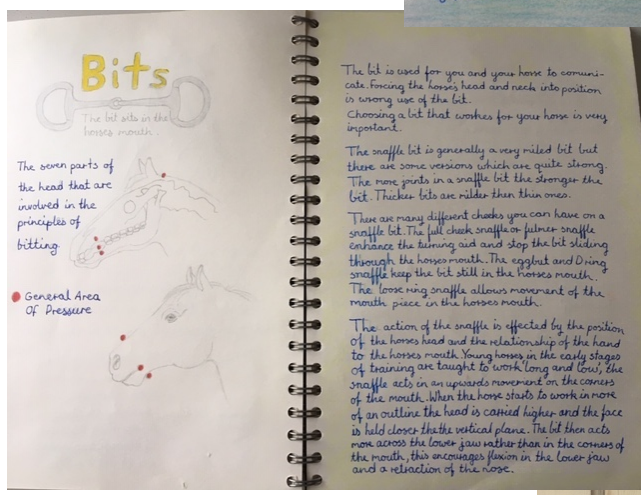 Bits
The bit sits in the
horses mouth.
The seven parts of
the head that are
involved in the
principles of
bitting
General Area
Of Pressure
The bit is used for you and your horse to comuni-
cate. Forcing the horses head and neck into position
is wrong use of the bit.
Choosing a bit that workes for your horse is very
important.
The snaffle bit is generally a very miled bit but
there are some versions which are quite strong.
The more joints in a snaffle bit the stronger the
bit. Thicker bits are milder then thin ones.
There are many different cheeks you can have on a
snaffle bit. The full cheek snaffle or fulmer snaffle
enhance the turning aid and stop the bit sliding
through the horses mouth. The eggbut and D ring
snaffle keep the bit still in the horses mouth.
The loose ring snaffle allows movement of the
mouth piece in the horses mouth.
The action of the snaffle is effected by the position
of the horses head and the relationship of the hand
to the horses mouth. Young horses in the early stages
of training are taught to work 'long and low', the
snaffle acts in an upwards movement on the corners
of the mouth. When the horse starts to work in more
of an outline the head is carried higher and the face
is held closer the the vertical plane. The bit then acts
more across the lower jaw rather than in the corners of
the mouth, this encourages flexion in the lower jaw
and a retraction of the nose.